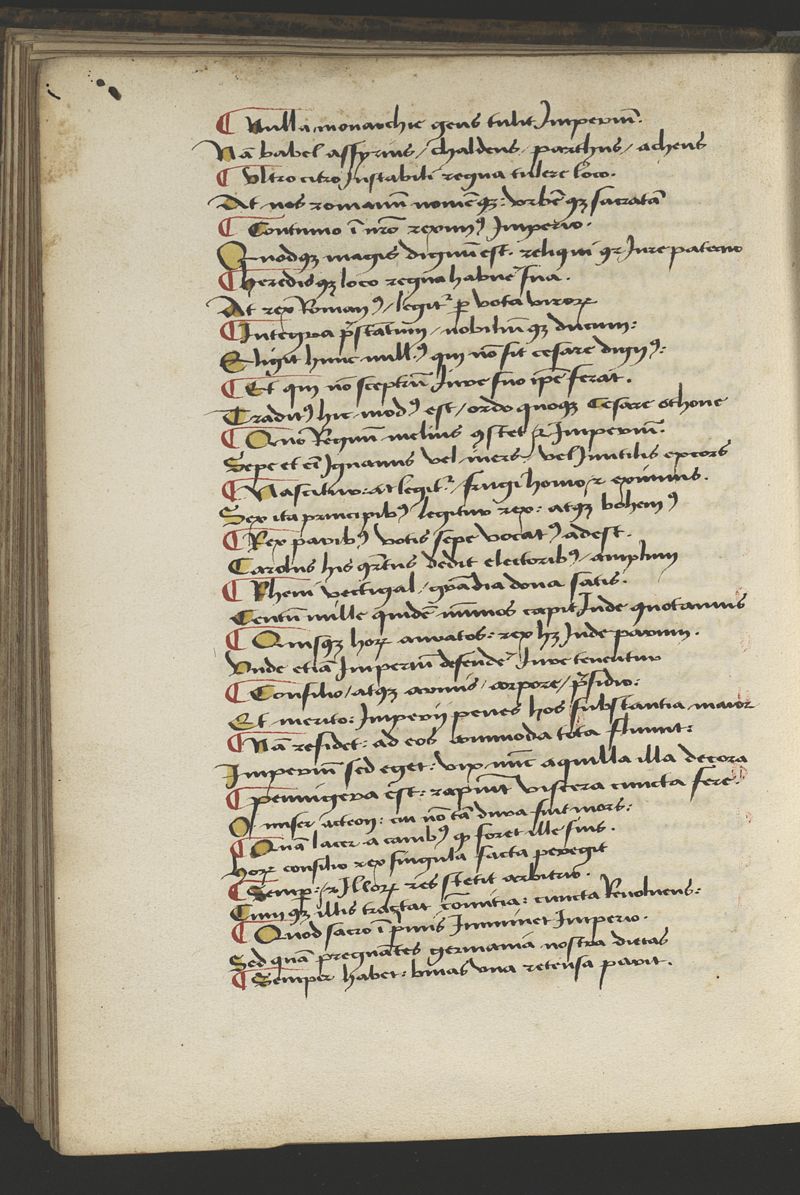 ¶ Nulla monarchie gens tulit Imperiū.
Nā babel assyrius / chaldeus / parthus / acheus
¶ Vltro citro Instabili regna tulere loco.
At nos romanū nomēqꝫ: vrbēqꝫ sacratā
¶ Continuo ī nr̄o reximꝰ Imperio.
Quodqꝫ magis dignū est. reliqui qr Iure paterno
¶ Heredisqꝫ loco regna habueʳ sua.
At rex Romanꝰ / legitʳ ꝑ vota viroꝝ
¶ Integra p̄stantum / nobiliū qꝫ ducum:
Eligit hunc nullꝰ qui nō sit cesare dignꝰ:
¶ Et qui nō sceptrū Iure suo ip̄e ferat.
Traditꝰ hic modꝰ est / ordo quoqꝫ Cesare othone
¶ Quo Regnum melius ꝯstet ⁊ Imperium.
Sepe et em̄ Ignauus vel iners / vel Inutilis expers
¶ Nascitur: at legitʳ / frugi homo ⁊ eximius.
Sex ita principibꝰ legitur rex: atqꝫ bohemꝰ
¶ Rex paribꝰ votis sepe vocatꝰ adest.
Carolus his qrtus dedit electoribꝰ / amplum
¶ Rheni vectigal / grādia dona satis.
Centū mille quidē nūmos capit Inde quotannis
¶ Quisqꝫ hoꝝ auratos: rex hꝫ Inde parum.
Vnde etiā Imperiū defendeʳ Iure tenentur
¶ Consilio / atqꝫ armis / corpore / p̄sidio:
Et merito: Imperij penes hos substantia maior
¶ Nā residet: ad eos commoda tota fluunt:
Imperiū sed eget: vix nūc aquilla illa decora
¶ pennigera est: rapiūt viscera cuncta fere.
O miser acteon: cui nō tā dura fuit mors:
¶ Quā lacer a canibꝰ qꝫ foret ille suis.
Hoꝝ consilio rex singula facta peregit
¶ Semp: ⁊ Illoꝝ res stetit arbitrio.
Cumqꝫ illis tractat comitia: cuncta Reuoluens:
¶ Quod sacro ī primis Imminet Imperio.
Sed quā pregnātes germania nostra dietas
¶ Semper habet: binas vna retensa parit.